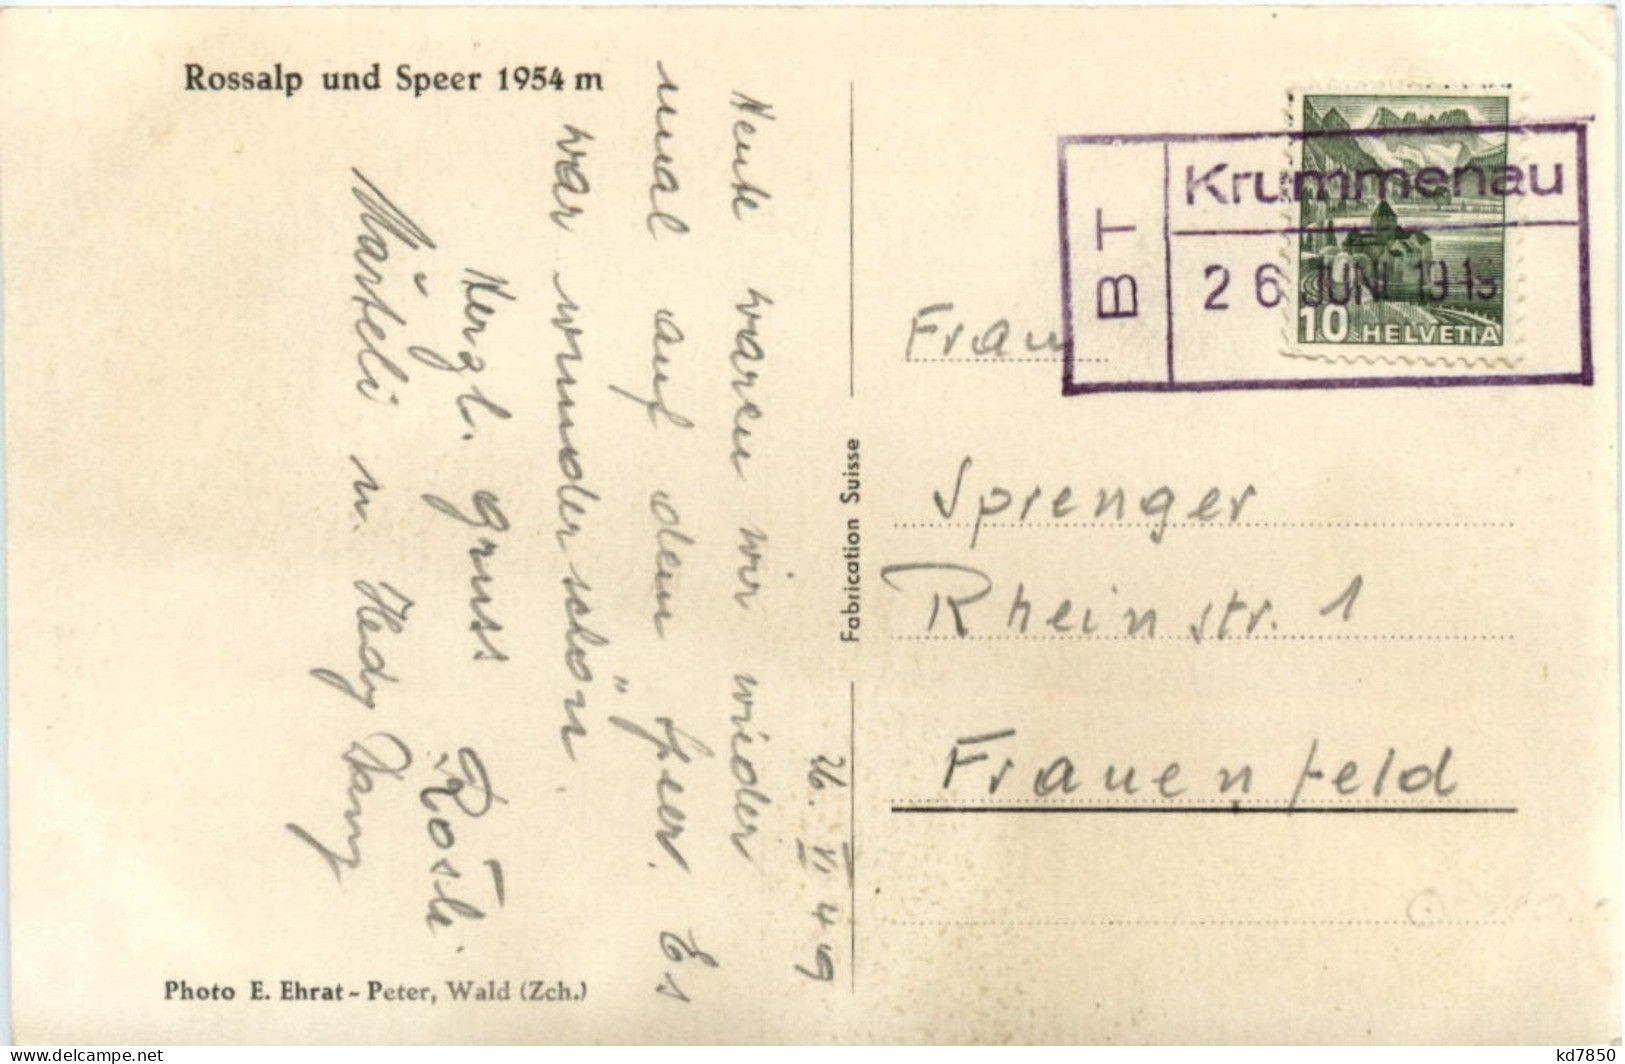 Rossalp und Speer 1954 m
26. VI 49
Heute waren wir wieder
mal auf dem Speer. Es
war wunderschön.
Herzl. Gruss Rösli.
u. Hedy
Photo E. Ehrat-Peter, Wald (Zch.)
Fabrication Suisse
BT
Krummenau
26 JUNI
10 HELVETIA
Frau
Sprenger
Rheinstr. 1
Frauenfeld
kd7850